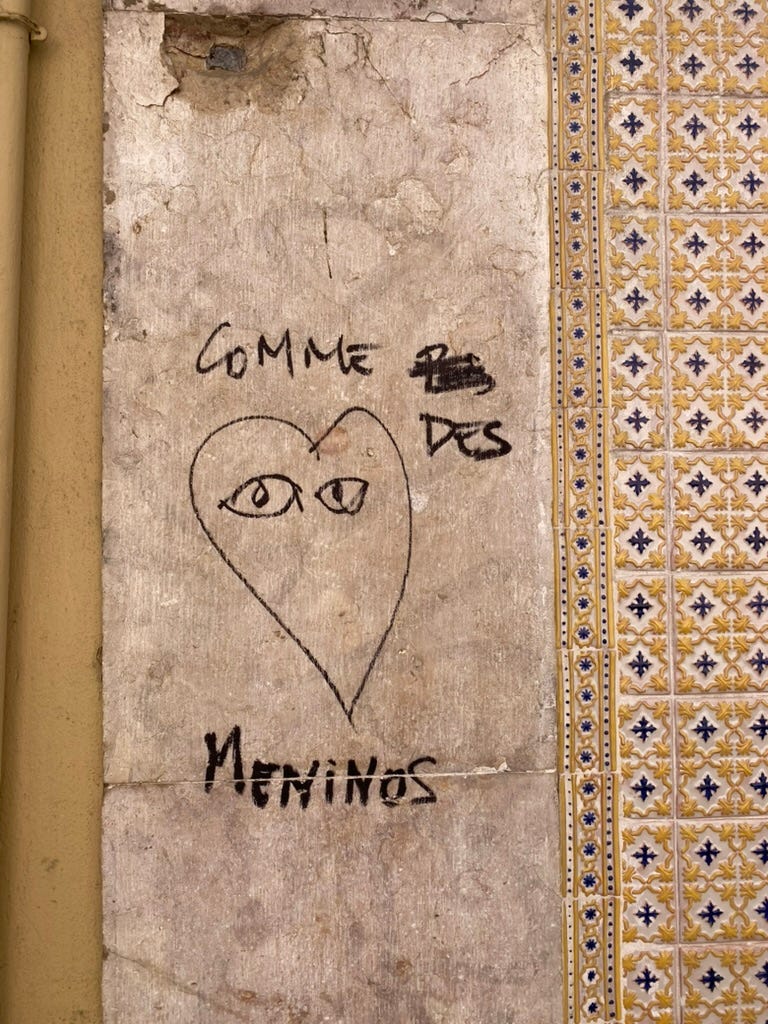 COMME
DES
MENINOS